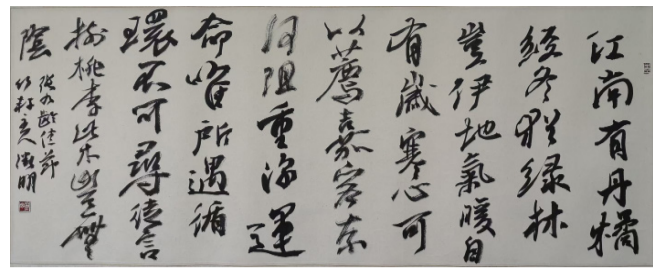 江南有丹橘
經冬猶綠林
豈伊地氣暖自
有歲寒心可
以薦嘉客奈
何阻重深運
命唯所遇循
環不可尋徒言
樹桃李此木豈無
陰
張九齡
明